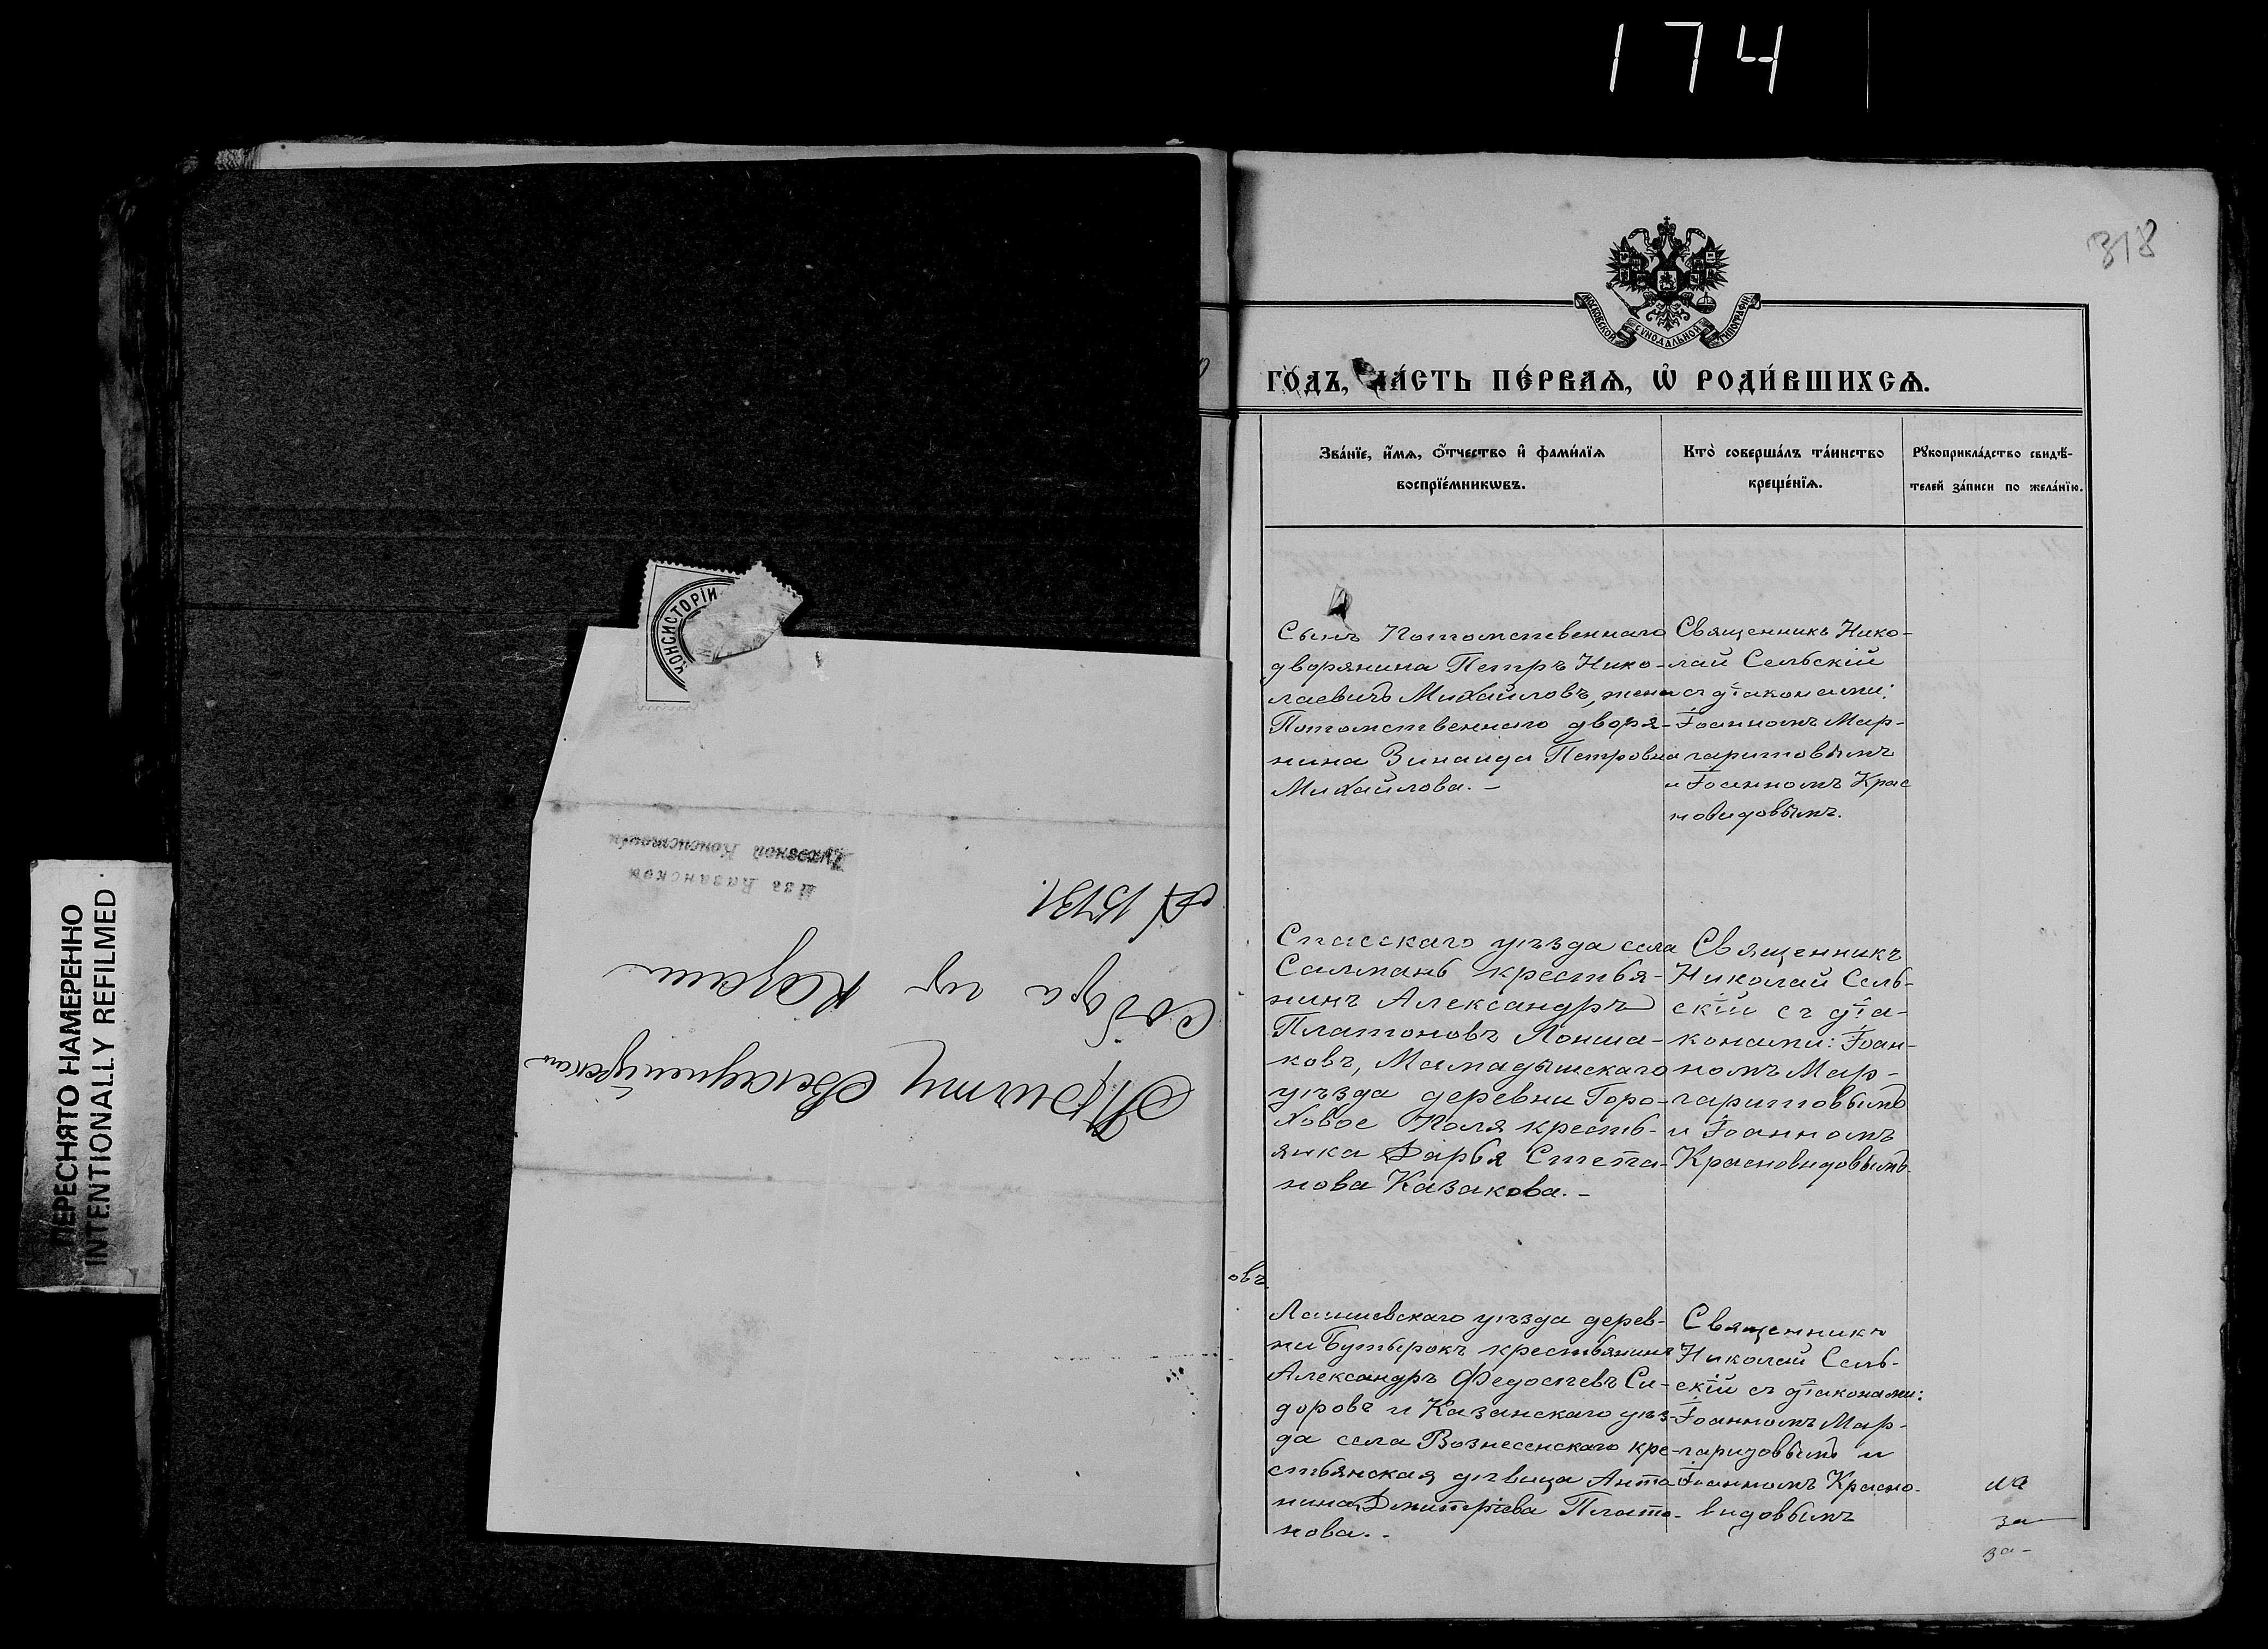 174
318
МОСКОВСКОЙ СѴНОДАЛЬНОЙ ТИПОГРАФІИ
ГО́ДЪ, ЧА́СТЬ ПЕ́РВАѦ, Ѽ РОДИ́ВШИХСѦ.
Зва́нїе, и҆́мѧ, ѻ҆́тчество и҆ фами́лїѧ
воспрїе́мникѡвъ.
Кто̀ соверша́лъ та́инство
креще́нїѧ.
Рꙋкоприкла́дство свидѣ-
телей за́писи по жела́нїю.
Сынъ Потомственнаго
дворянина Петръ Нико-
лаевичъ Михайловъ, жена
Потомственнаго дворя-
нина Зинаида Петровна
Михайлова. –
Священникъ Нико-
лай Сельскій
съ діаконами:
Іоанномъ Мар-
гаритовымъ
и Іоанномъ Крас
новидовымъ.
Спасскаго уѣзда села
Салманъ крестья-
нинъ Александръ
Платоновъ Лонша-
ковъ, Мамадышскаго
уѣзда деревни Горо-
ховое Поля кресть-
янка Дарья Степа-
нова Казакова. –
Священникъ
Николай Сель-
скій съ діа-
конами: Іоан-
номъ Мар-
гаритовымъ
и Іоанномъ
Красновидовымъ.
овъ
Лаишевскаго уѣзда дерев-
ни Бутырокъ крестьянинъ
Александръ Федосѣевъ Си-
доровъ и Казанскаго уѣз-
да села Вознесенскаго кре-
стьянская дѣвица Анто
нина Дмитріева Плато-
нова. -
Священникъ
Николай Сель-
скій съ діаконами:
Іоанномъ Мар-
гаритовымъ и
Іоанномъ Красно-
видовымъ
на
за
за-
КОНСИСТОРІИ
Изъ Казанской
Духовной Консисторіи
№ 15131.
Причту Каѳедральнаго
Собора гор Казани
ПЕРЕСНЯТО НАМЕРЕННО
INTENTIONALLY REFILMED